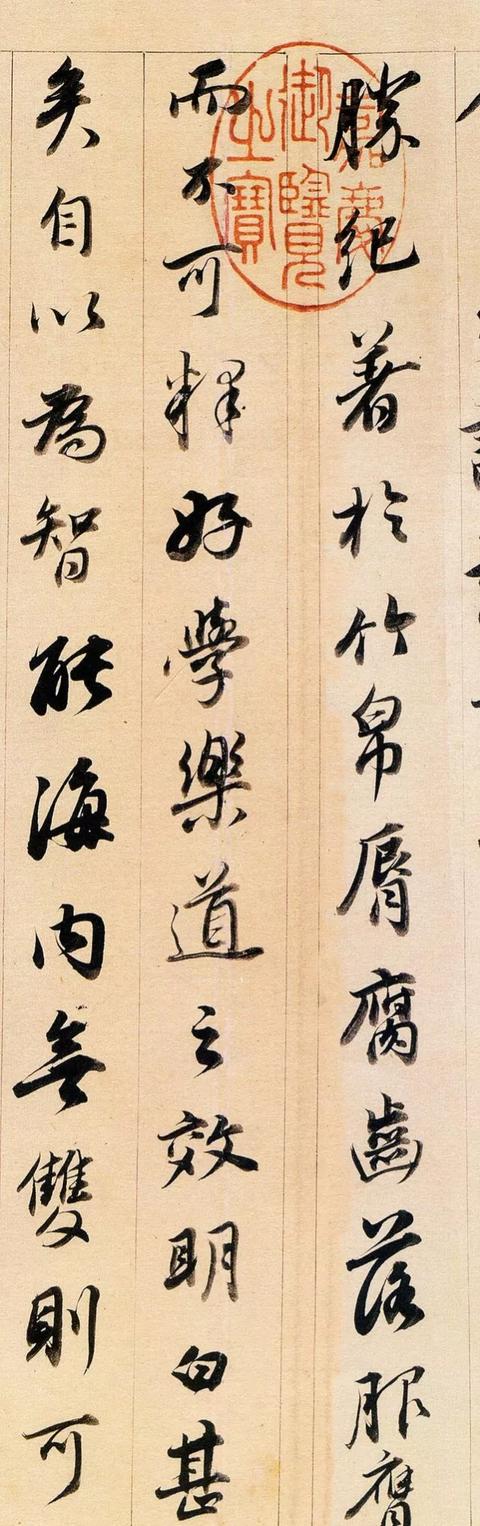 勝紀著於竹帛脣腐齒落服膺
而不可釋好學樂道之效明白甚
矣自以為智能海內無雙則可
嘉慶御覽之寶